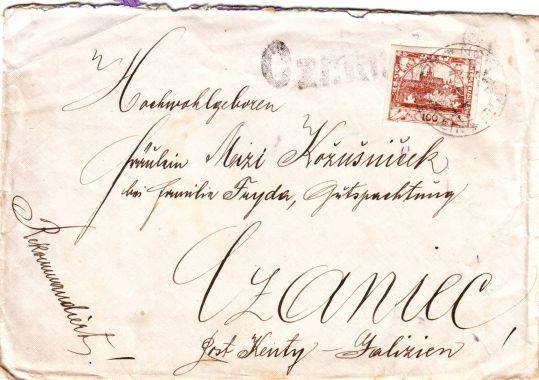 Hochwohlgeboren
Fräulein Mizi Kožušniček
bei Familie Fryda, Gutspachtung
Czaniec,
Post Kenty – Galizien
Rekommandiert!
100